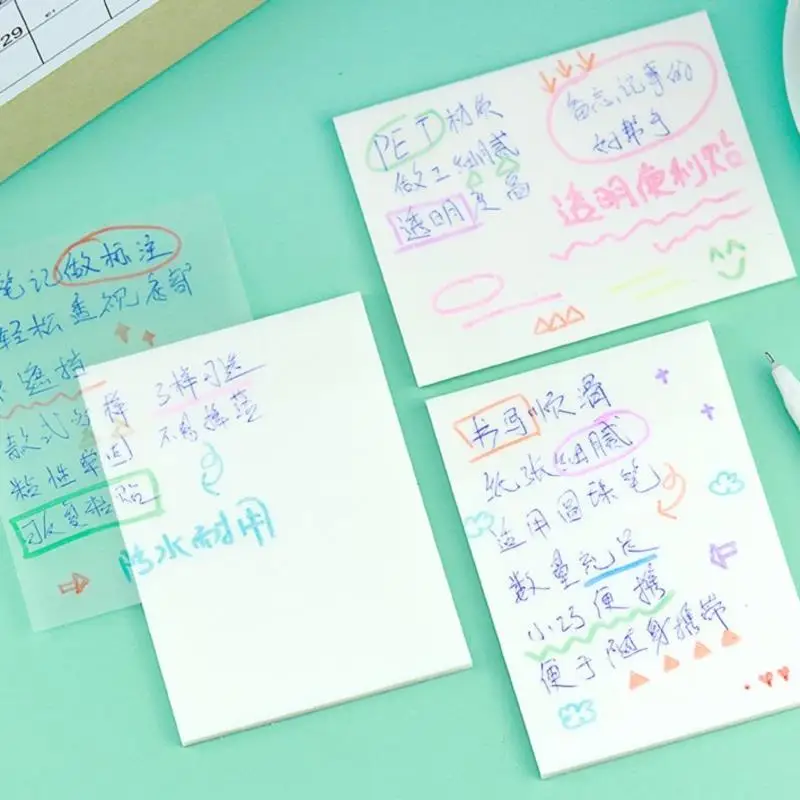 29
PET材质
做工细腻
透明度高
备忘记事的
好帮手
透明便利贴
笔记做标注
轻松重现底部
不遮挡
款式多样 多样可选
粘性牢固 不易掉
反复粘贴
防水耐用
书写顺滑
纸张细腻
适用圆珠笔
数量充足
小巧便携
便于随身携带